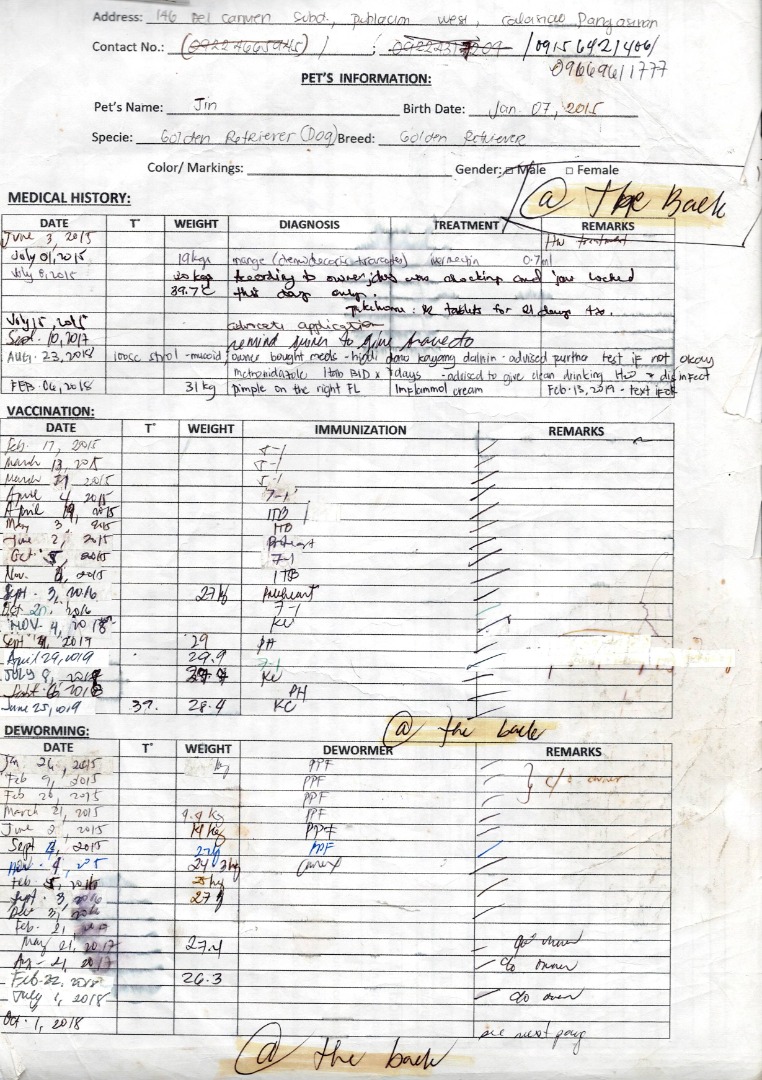 Address: 146 Del Carmen Subd., Poblacion West, Calasiao Pangasinan
Contact No.: (09224665945) / ; / 09156421406/
09669611777
PET'S INFORMATION:
Pet's Name: Jin Birth Date: Jan. 07, 2015
Specie: Golden Retriever (Dog) Breed: Golden Retriever
Color/ Markings: Gender: Male Female
@ The Back
MEDICAL HISTORY:
DATE T° WEIGHT DIAGNOSIS TREATMENT REMARKS
June 3, 2015 HW treatment
July 01, 2015 19kgs mange ivermectin 0.7ml
July 8, 2015 20 kgs According to owner, was chocking and jaw locked
39.7°C this day only.
: 12 tablets for 21 days
July 15, 2015 advocate application
Sept. 10, 2017 remind owner to give
Aug. 23, 2018 loose stool - mucoid owner bought meds - hindi daw kayang dalhin - advised further test if not okay
metronidazole 1tab BID x 7days - advised to give clean drinking H2O + disinfect
Feb. 06, 2018 31 kg pimple on the right FL Implammol cream Feb. 13, 2019 - text if ok
VACCINATION:
DATE T° WEIGHT IMMUNIZATION REMARKS
Feb. 17, 2015 5-1
March 13, 2015 5-1
March 2015 5-1
April 4, 2015 7-1
April 19, 2015 ITB
May 3, 2015 ITB
June 2, 2015 Proheart
Oct. 5, 2015 7-1
Nov. 8, 2015 ITB
Sept. 3, 2016 27 kg Proheart
Oct 20, 2016 7-1
Nov. 4, 2018 KC
Sept 9, 2017 29 PH
April 29, 2019 29.9 7-1
July 8, 2018 KC
Sept. 6, 2018 PH
June 25, 2019 39. 28.4 KC
@ the back
DEWORMING:
DATE T° WEIGHT DEWORMER REMARKS
Jan 26, 2015 kg PPF
Feb 9, 2015 PPF c/o owner
Feb 26, 2015 PPF
March 21, 2015 9.9 kg PPF
June 2, 2015 14 kg PPF
Sept 2015 PPF
Nov. 9, 2015 24.7kg Canex
Feb. 5, 2016 25kg
Sept. 3, 2016 27
Dec. 3, 2016
Feb. 21, 2017
May 21, 2017 27.4 c/o owner
Aug - 21, 2017 c/o owner
Feb. 22, 2018 26.3
July 1, 2018 c/o owner
Oct. 1, 2018
see next page
@ the back